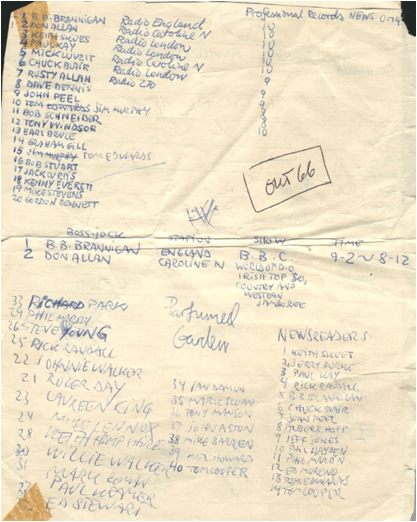 Professional Records NEWS
1 B.B. BRANNIGAN Radio England 18
2 DON ALLAN Radio Caroline N 18
3 KEITH SKUES Radio London 10
4 PAUL KAY Radio London 10
5 MICK LUVZIT Radio Caroline N 10
6 CHUCK BLAIR Radio London
7 RUSTY ALLAN Radio 270 9
8 DAVE DENNIS
9 JOHN PEEL
10 TOM EDWARDS JIM MURPHY
11 BOB SCHNEIDER
12 TONY WINDSOR
13 EARL BRUCE
14 GRAHAM GILL
15 JIM MURPHY TOM EDWARDS
16 BOB STUART
17 JACK CURTIS
18 KENNY EVERETT
19 MIKE STEVENS
20 GORDON BENNETT
OUT 66
BOSS-JOCK STATION SHOW TIME
1 B.B. BRANNIGAN ENGLAND B.B.C. 9-2
2 DON ALLAN CAROLINE N WORLD OF D.O. 8-12
IRISH TOP 30,
COUNTRY AND
WESTERN
JAMBOREE
33 RICHARD PARK
29 PHIL MARTIN
26 STEVE YOUNG
25 RICK RANDALL
22 JOHNNIE WALKER
21 ROGER DAY
23 LAUREEN KING
24 MIKE LENNOX
28 KEITH HAMPSHIRE
30 WILLIE WALKER
31 MARK ROMAN
PAUL KRAMER
ED STEWART
Parfumed
Garden
34 IAN DAMON
35 MARK SLOAN
36 TONY MANSON
37 JOHN ASTON
38 MIKE BARREN
39 MEL HOWARD
40 TOM COOPER
NEWSREADERS
1 KEITH SKUES
2 JERRY BURKE
3 PAUL KAY
4 RICK RANDALL
5 B.B BRANNIGAN
6 CHUCK BLAIR
7 JOHN PEEL
8 ALBERT HOPP
9 JEFF JONES
10 PAT HAYDEN
11 PHIL MARTIN
12 ED MORENO
13 TOM EDWARDS
14 TOM COOPER